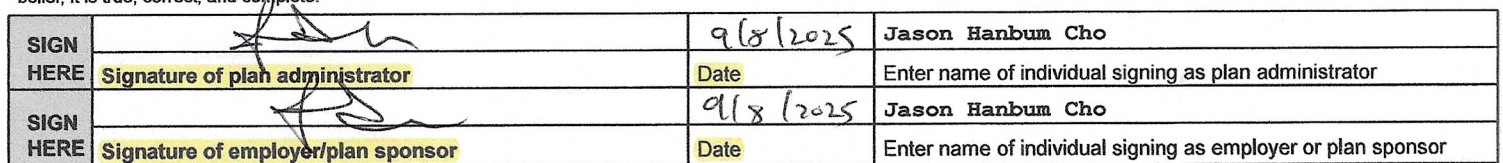 belief, it is true, correct, and complete.
SIGN HERE
9/8/2025 Jason Hanbum Cho
Signature of plan administrator Date Enter name of individual signing as plan administrator
SIGN HERE
9/8/2025 Jason Hanbum Cho
Signature of employer/plan sponsor Date Enter name of individual signing as employer or plan sponsor